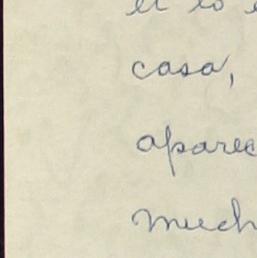 casa,
aparec
much